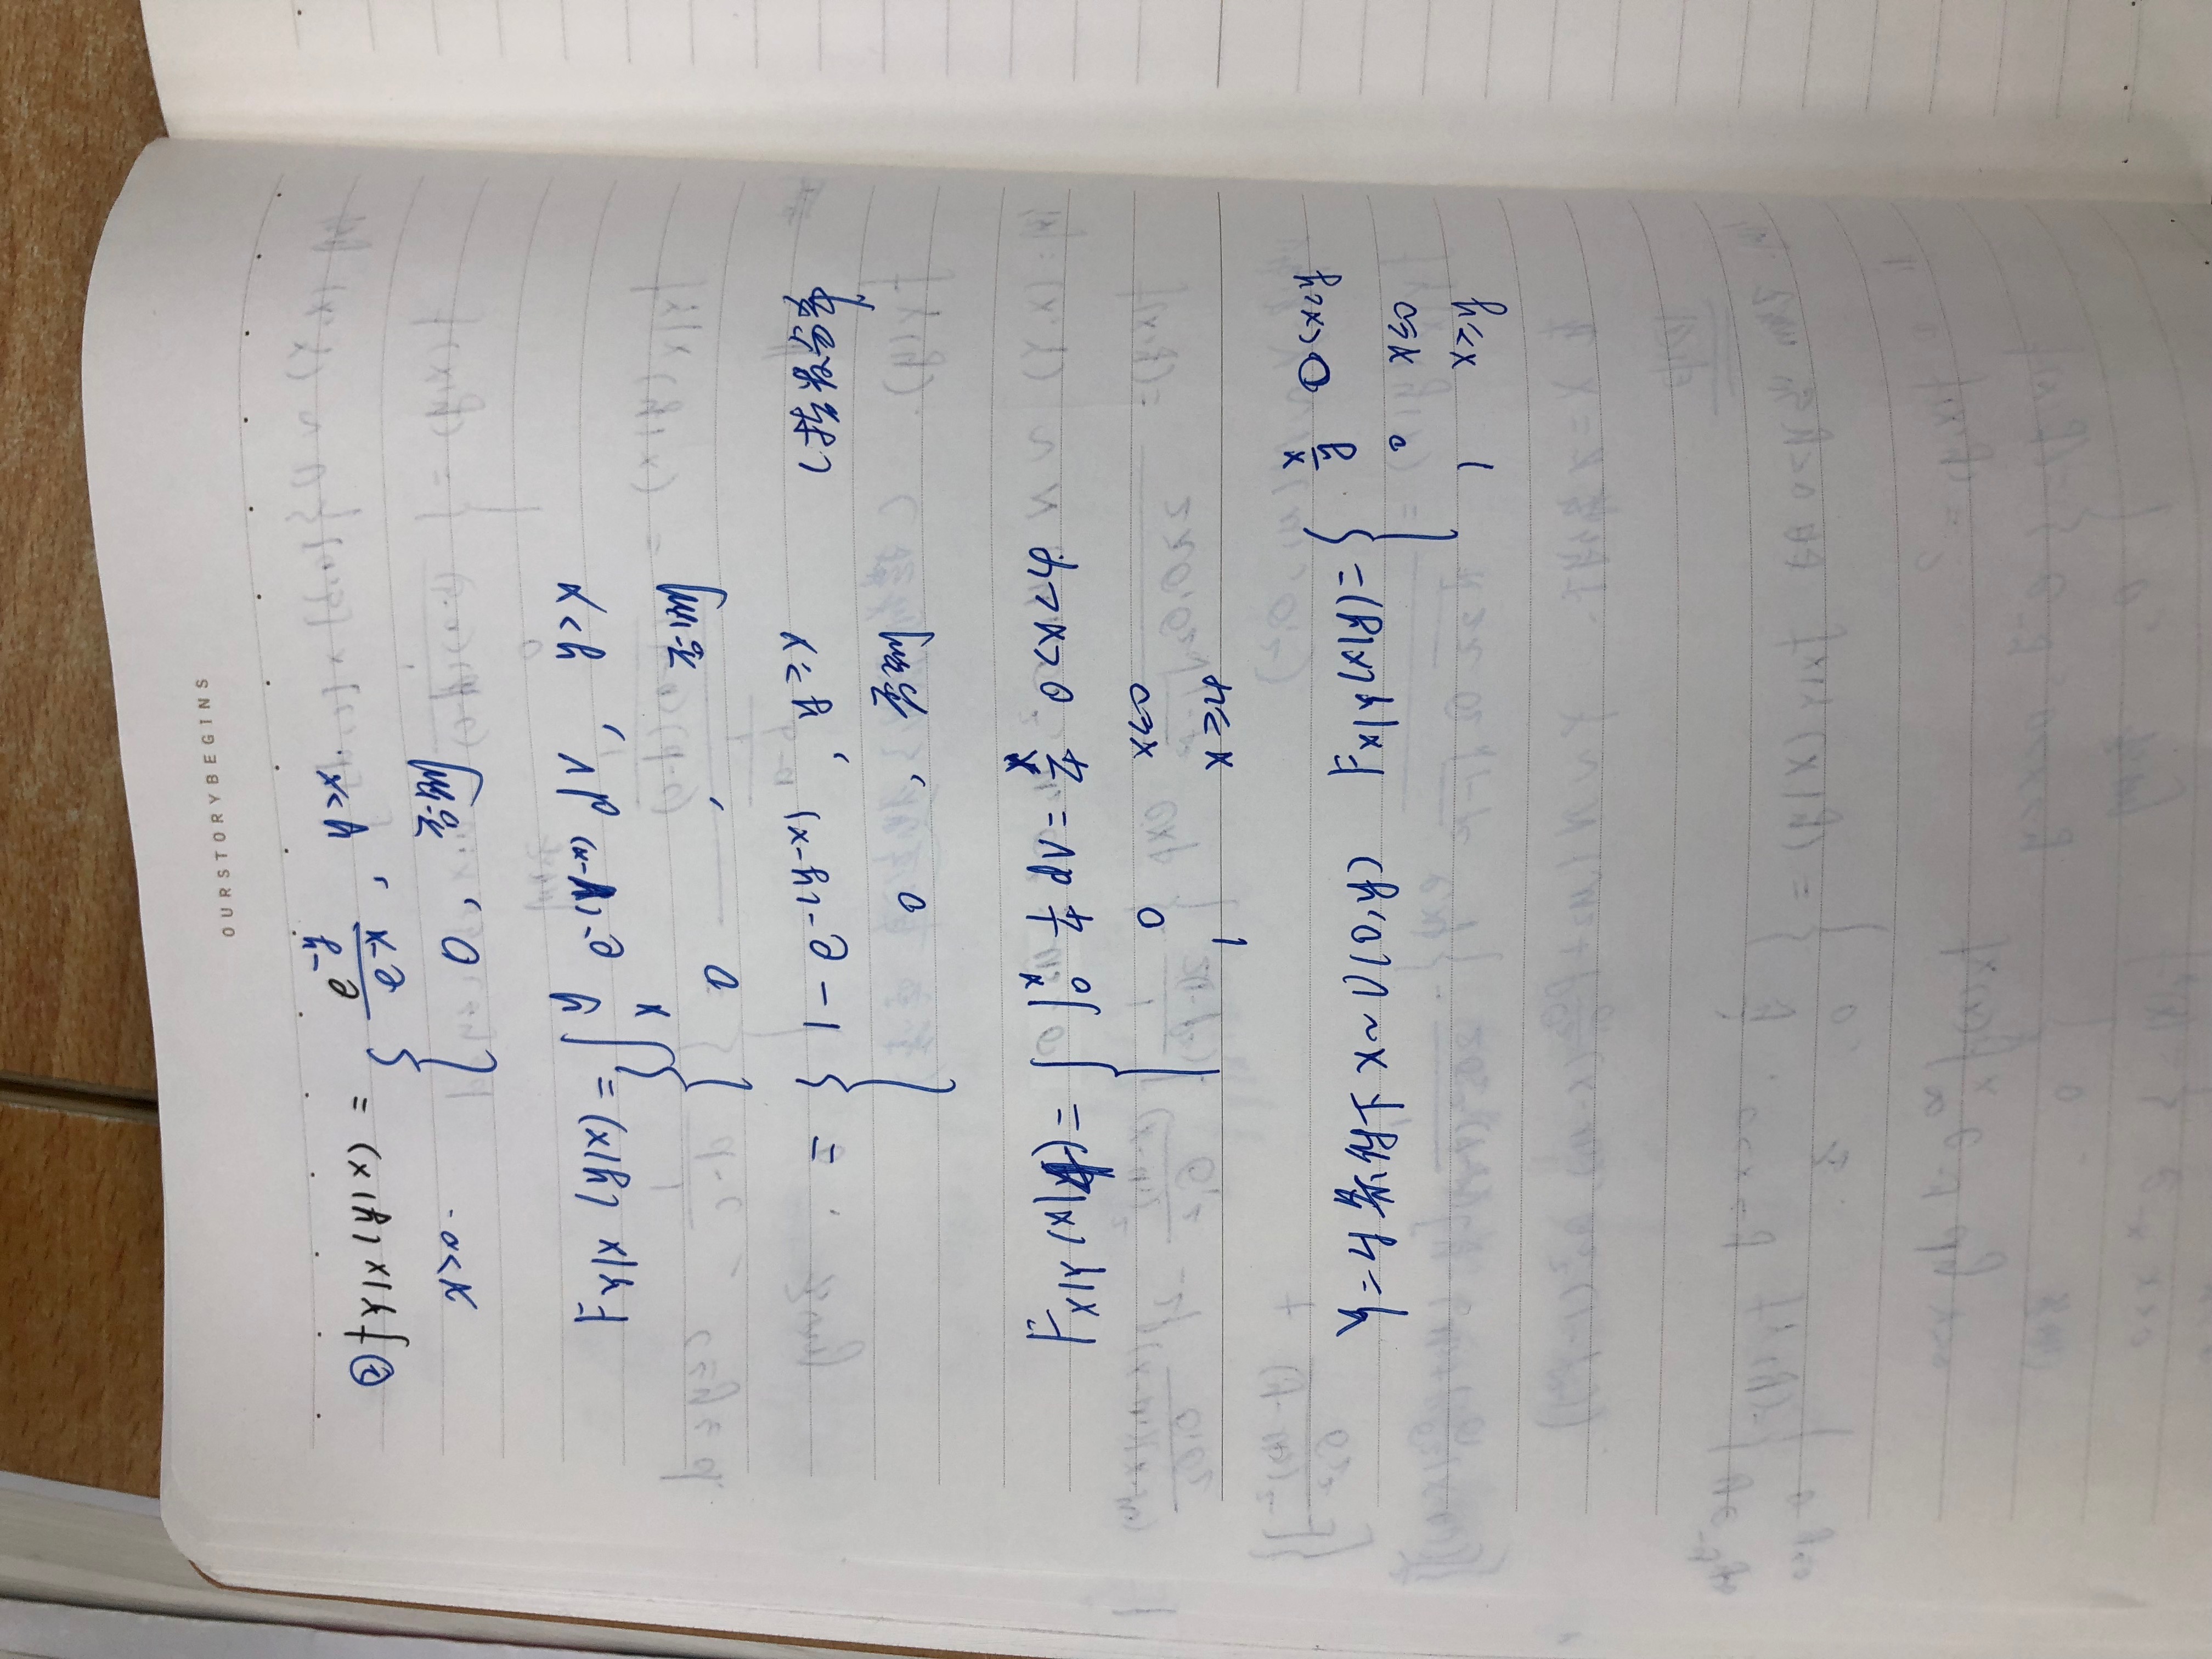 OURSTORYBEGINS
② f Y|X (y|x) = { e^{-y} / e^{-x} , y>x.
x>0. 0 , 否则
F Y|X (y|x) = { ∫_x^y e^{-(v-x)} dv , y>x
0 , 否则
= { 1 - e^{-(y-x)} , y≥x (指数分布
0 , 否则
F X|Y (x|4) = { ∫_0^x 1/4 dv = x/4 0<x<4.
0 x≤0
1 x≥4
Y=y 条件下 X~U(0,y) F X|Y (x|y) = { x/y 0<x<y
0 x≤0
1 x≥y